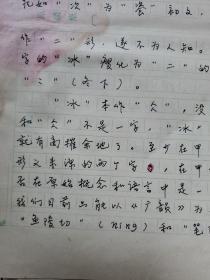 先如"次"为"餐"初文，
作"二"形，遂不为人知。
字的"冰"废化为"二"的
"三"（冬下）。
"冰"本作"仌"，没
和"仌"不是一字，"冰"
就有商榷余地了。至少在甲
形义来源的两个字，在甲
否在原始概念和语言中是一
我们目前只能以《广韵》为
"陵切"（ning）和笔